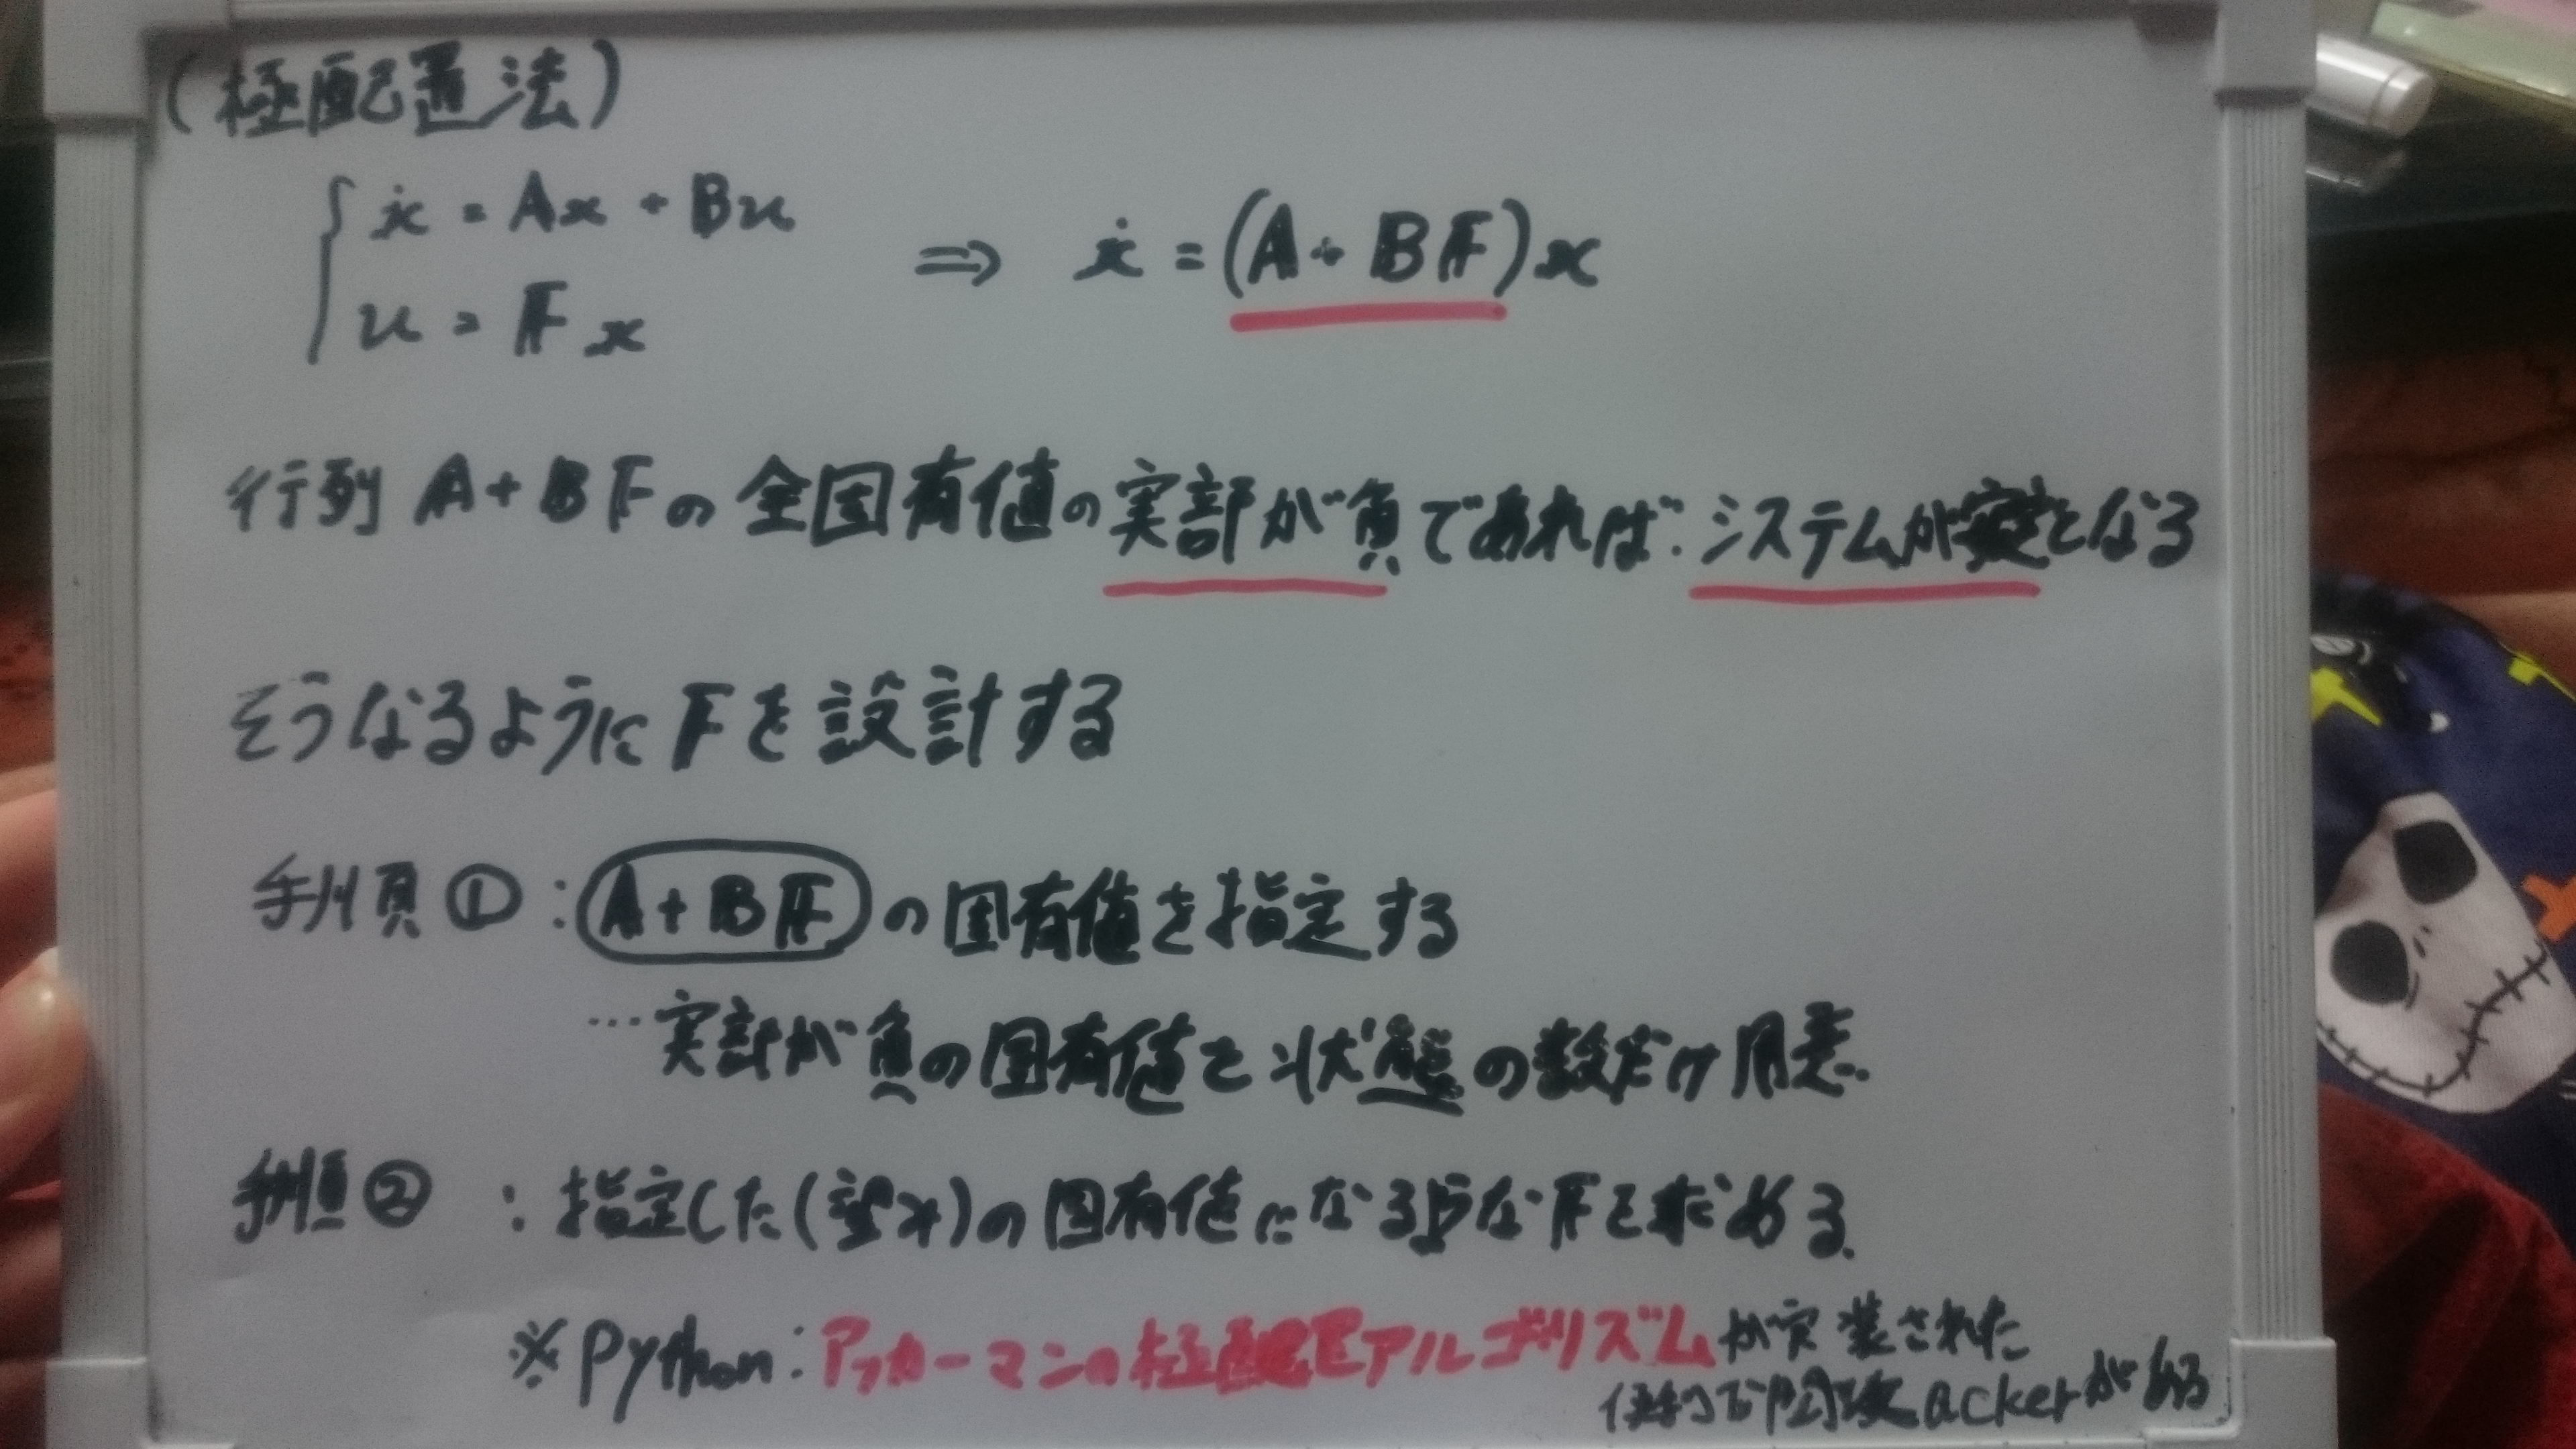 (極配置法)
ẋ = Ax + Bu
u = Fx
⇒ ẋ = (A + BF)x
行列 A+BFの全固有値の実部が負であれば、システムが安定となる
そうなるようにFを設計する
手順①:A+BFの固有値を指定する
…実部が負の固有値を状態の数だけ用意.
手順② :指定した(望み)の固有値になるようなFを求める.
※Python:アッカーマンの極配置アルゴリズムが実装された
便利な関数ackerがある